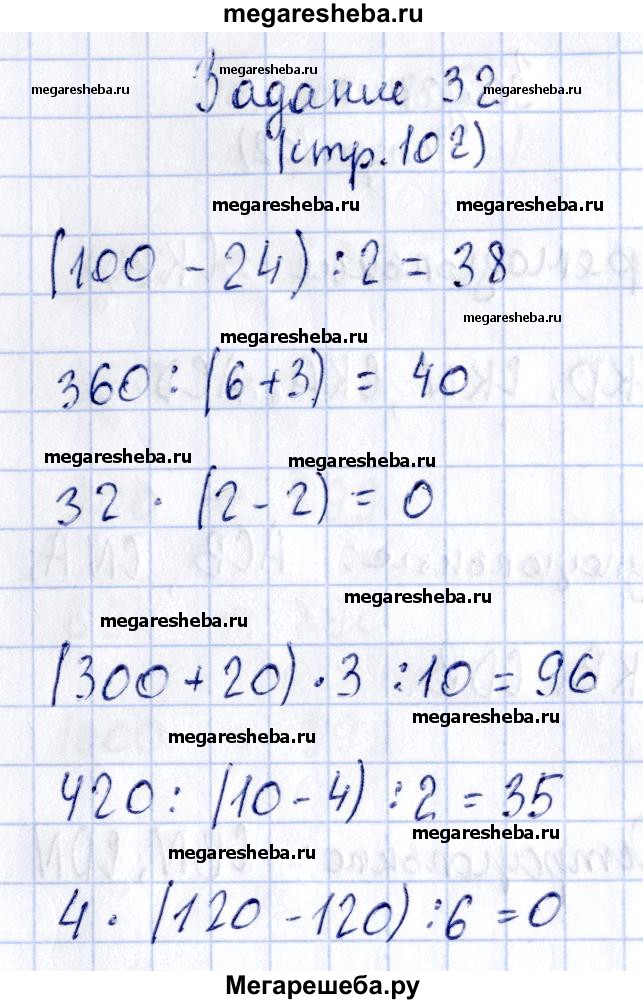 megaresheba.ru
megaresheba.ru megaresheba.ru megaresheba.ru
Задание 32
(стр. 102)
megaresheba.ru megaresheba.ru
(100 - 24) : 2 = 38
megaresheba.ru
megaresheba.ru
360 : (6+3) = 40
megaresheba.ru megaresheba.ru
32 · (2 - 2) = 0
megaresheba.ru
megaresheba.ru
(300 + 20) · 3 : 10 = 96
megaresheba.ru
megaresheba.ru
420 : (10 - 4) : 2 = 35
megaresheba.ru
megaresheba.ru
4 · (120 - 120) : 6 = 0
Мегарешеба.ру